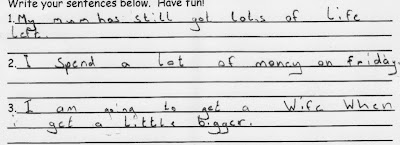 Write your sentences below. Have fun!
1. My mum has still got lots of life
left.
2. I spend a lot of money on friday.
3. I am going to get a Wife When
i get a little bigger.